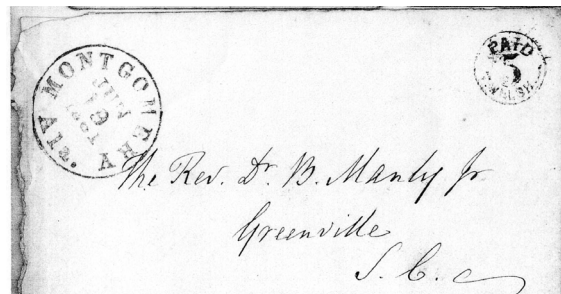 MONTGOMERY ALA.
JUN
19
1861
PAID
5
T. WELSH
The Rev. Dr. B. Manly Jr
Greenville
S. C.